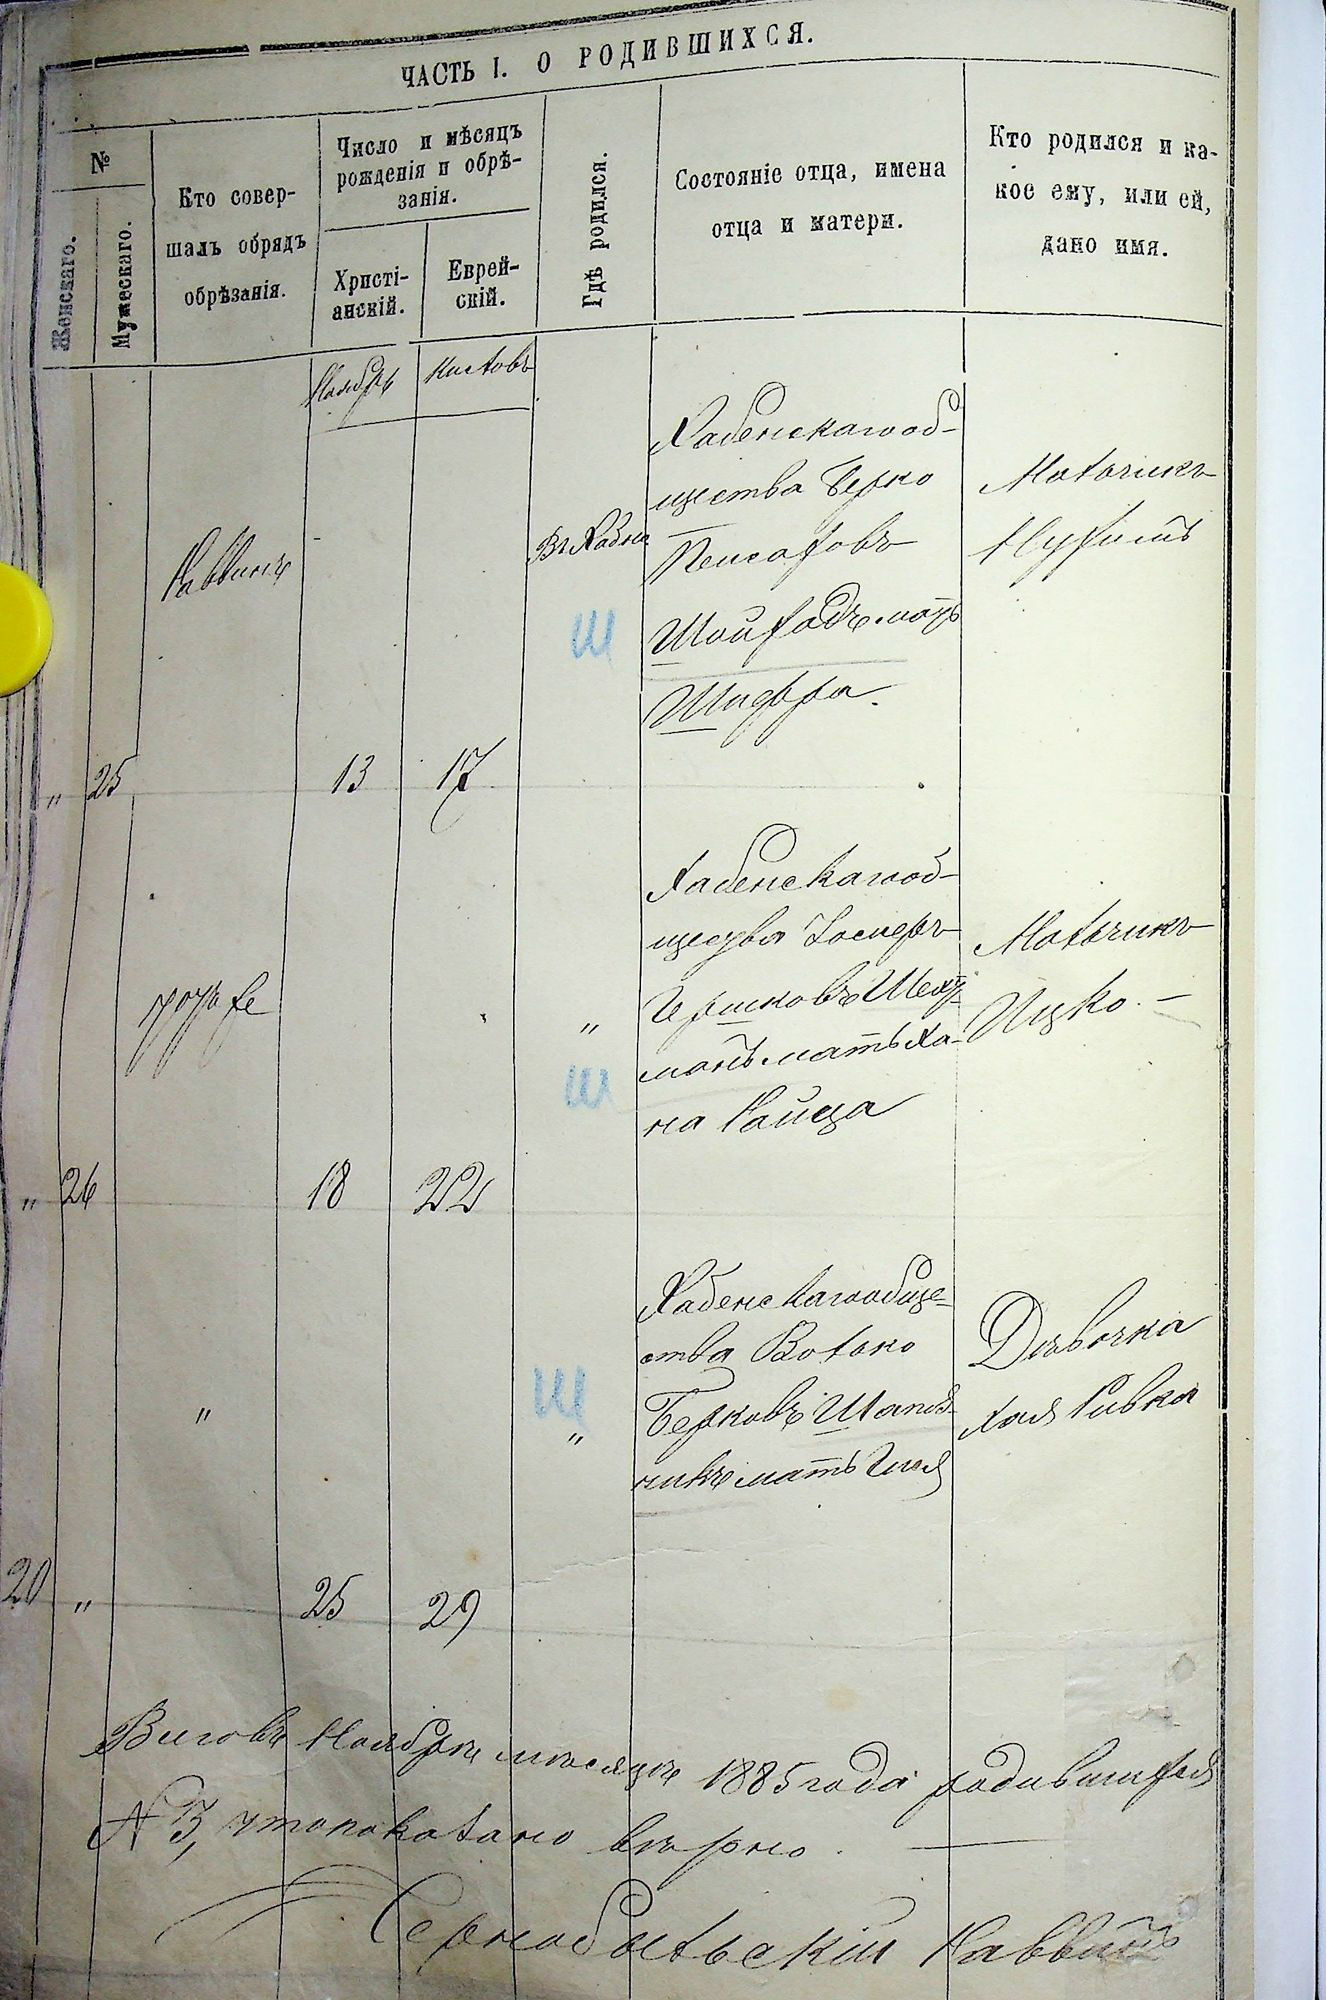 ЧАСТЬ I. О РОДИВШИХСЯ.
№
Женскаго.
Мужескаго.
Кто совер-
шалъ обрядъ
обрѣзанія.
Число и мѣсяцъ
рожденія и обрѣ-
занія.
Христі-
анскій.
Еврей-
скій.
Гдѣ родился.
Состояніе отца, имена
отца и матери.
Кто родился и ка-
кое ему, или ей,
дано имя.
Ноябрь
Кислевъ
„ 25
Раввинъ
13
17
Ш
Хабенскаго об-
щества Берко
Шойхадъ мать
Шифра.
Мальчикъ
„ 26
18
22
„
Ш
Хабенскаго об-
щества
Гершковъ
манъ мать Ха-
на Райца
Мальчикъ
Ицко. —
20 „
„
25
29
Ш
„
Хабенскаго обще-
ства Волько
Берковъ Шапов-
никъ мать
Дѣвочка
Хая Ривка
Ноябрѣ мѣсяцѣ 1885 года родившихся
№ 3, что показано вѣрно. —
Чернобыльскій Раввинъ